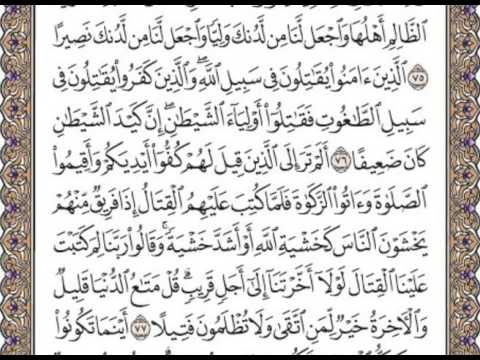 ٱلظَّالِمِ أَهْلُهَا وَٱجْعَل لَّنَا مِن لَّدُنكَ وَلِيًّا وَٱجْعَل لَّنَا مِن لَّدُنكَ نَصِيرًا
٧٥ ٱلَّذِينَ ءَامَنُوا۟ يُقَـٰتِلُونَ فِى سَبِيلِ ٱللَّهِ ۖ وَٱلَّذِينَ كَفَرُوا۟ يُقَـٰتِلُونَ فِى
سَبِيلِ ٱلطَّـٰغُوتِ فَقَـٰتِلُوٓا۟ أَوْلِيَآءَ ٱلشَّيْطَـٰنِ ۖ إِنَّ كَيْدَ ٱلشَّيْطَـٰنِ
كَانَ ضَعِيفًا ٧٦ أَلَمْ تَرَ إِلَى ٱلَّذِينَ قِيلَ لَهُمْ كُفُّوٓا۟ أَيْدِيَكُمْ وَأَقِيمُوا۟
ٱلصَّلَوٰةَ وَءَاتُوا۟ ٱلزَّكَوٰةَ فَلَمَّا كُتِبَ عَلَيْهِمُ ٱلْقِتَالُ إِذَا فَرِيقٌ مِّنْهُمْ
يَخْشَوْنَ ٱلنَّاسَ كَخَشْيَةِ ٱللَّهِ أَوْ أَشَدَّ خَشْيَةً ۚ وَقَالُوا۟ رَبَّنَا لِمَ كَتَبْتَ
عَلَيْنَا ٱلْقِتَالَ لَوْلَآ أَخَّرْتَنَآ إِلَىٰٓ أَجَلٍ قَرِيبٍ ۗ قُلْ مَتَـٰعُ ٱلدُّنْيَا قَلِيلٌ
وَٱلْـَٔاخِرَةُ خَيْرٌ لِّمَنِ ٱتَّقَىٰ وَلَا تُظْلَمُونَ فَتِيلًا ٧٧ أَيْنَمَا تَكُونُوا۟